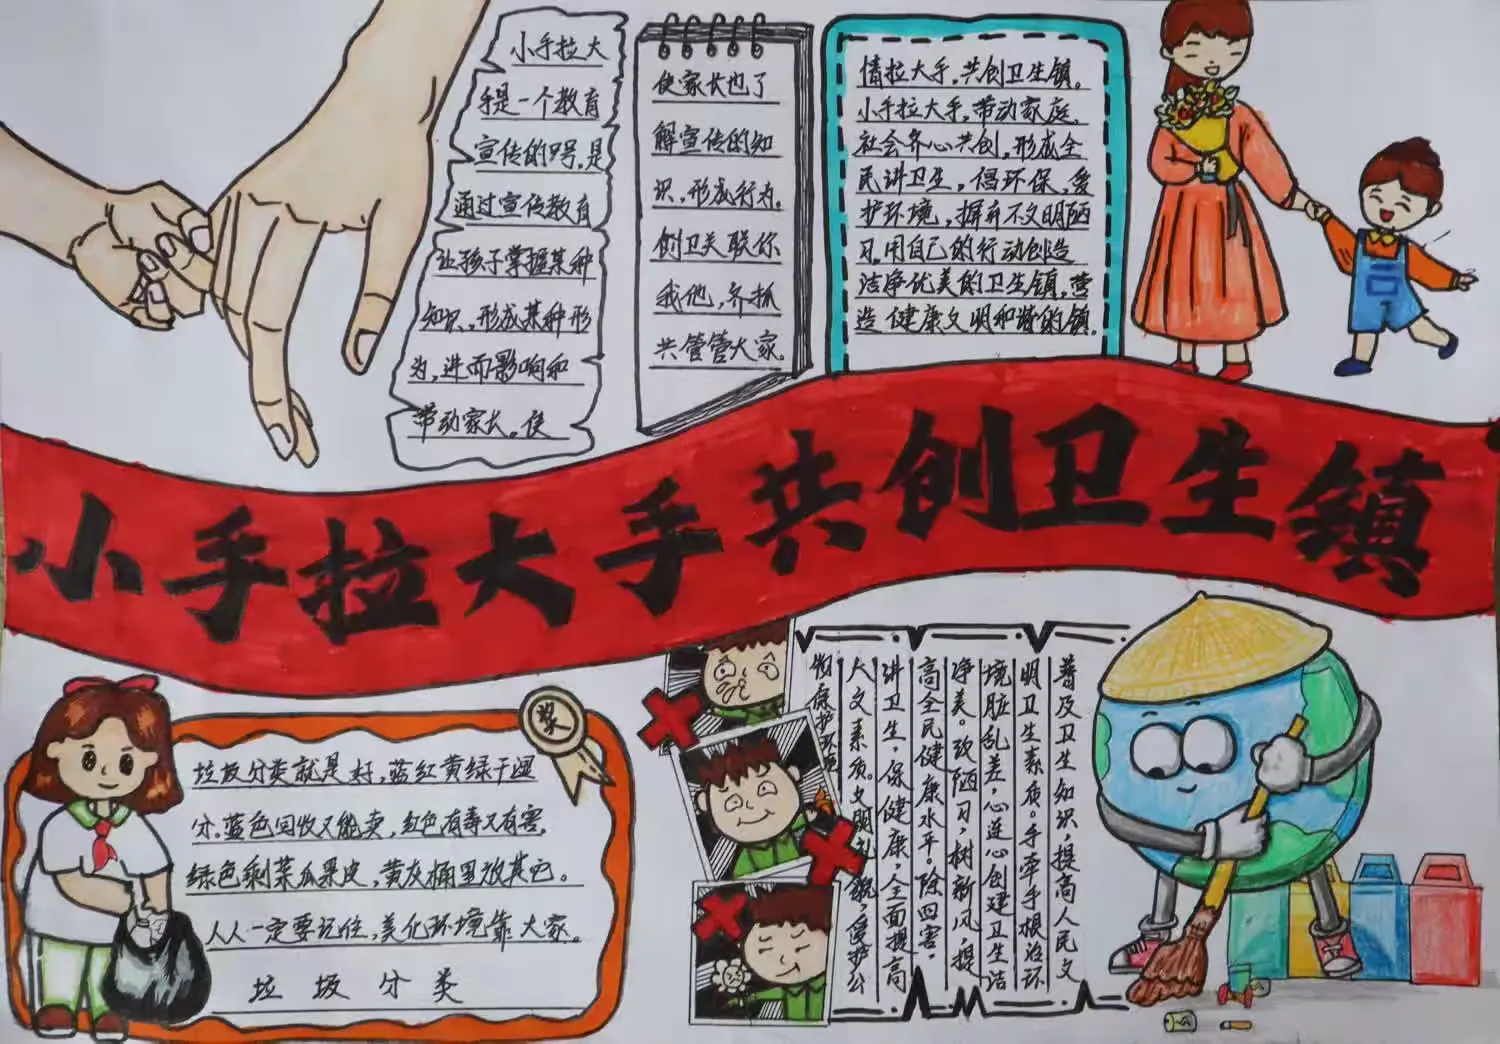 小手拉大
手是一个教育
宣传的口号，是
通过宣传教育
让孩子掌握某种
知识，形成某种形
为，进而影响和
带动家长。使
使家长也了
解宣传的知
识，形成行为。
创卫关联你
我他，齐抓
共管管大家。
情拉大手，共创卫生镇。
小手拉大手，带动家庭，
社会齐心共创，形成全
民讲卫生，倡环保，爱
护环境，摒弃不文明陋
习。用自己的行动创造
洁净优美的卫生镇，营
造健康文明和谐的镇。
小手拉大手共创卫生镇
奖
垃圾分类就是好，蓝红黄绿干湿
分。蓝色回收又能卖，红色有毒又有害。
绿色剩菜瓜果皮，黄灰桶里放其它。
人人一定要记住，美化环境靠大家。
垃圾分类
普及卫生知识，提高人民文
明卫生素质。手牵手根治环
境脏乱差，心连心创建卫生洁
净美。改陋习，树新风，提
高全民健康水平。除四害，
讲卫生，保健康，全面提高
人文素质。文明礼貌，爱护公
物保护环境